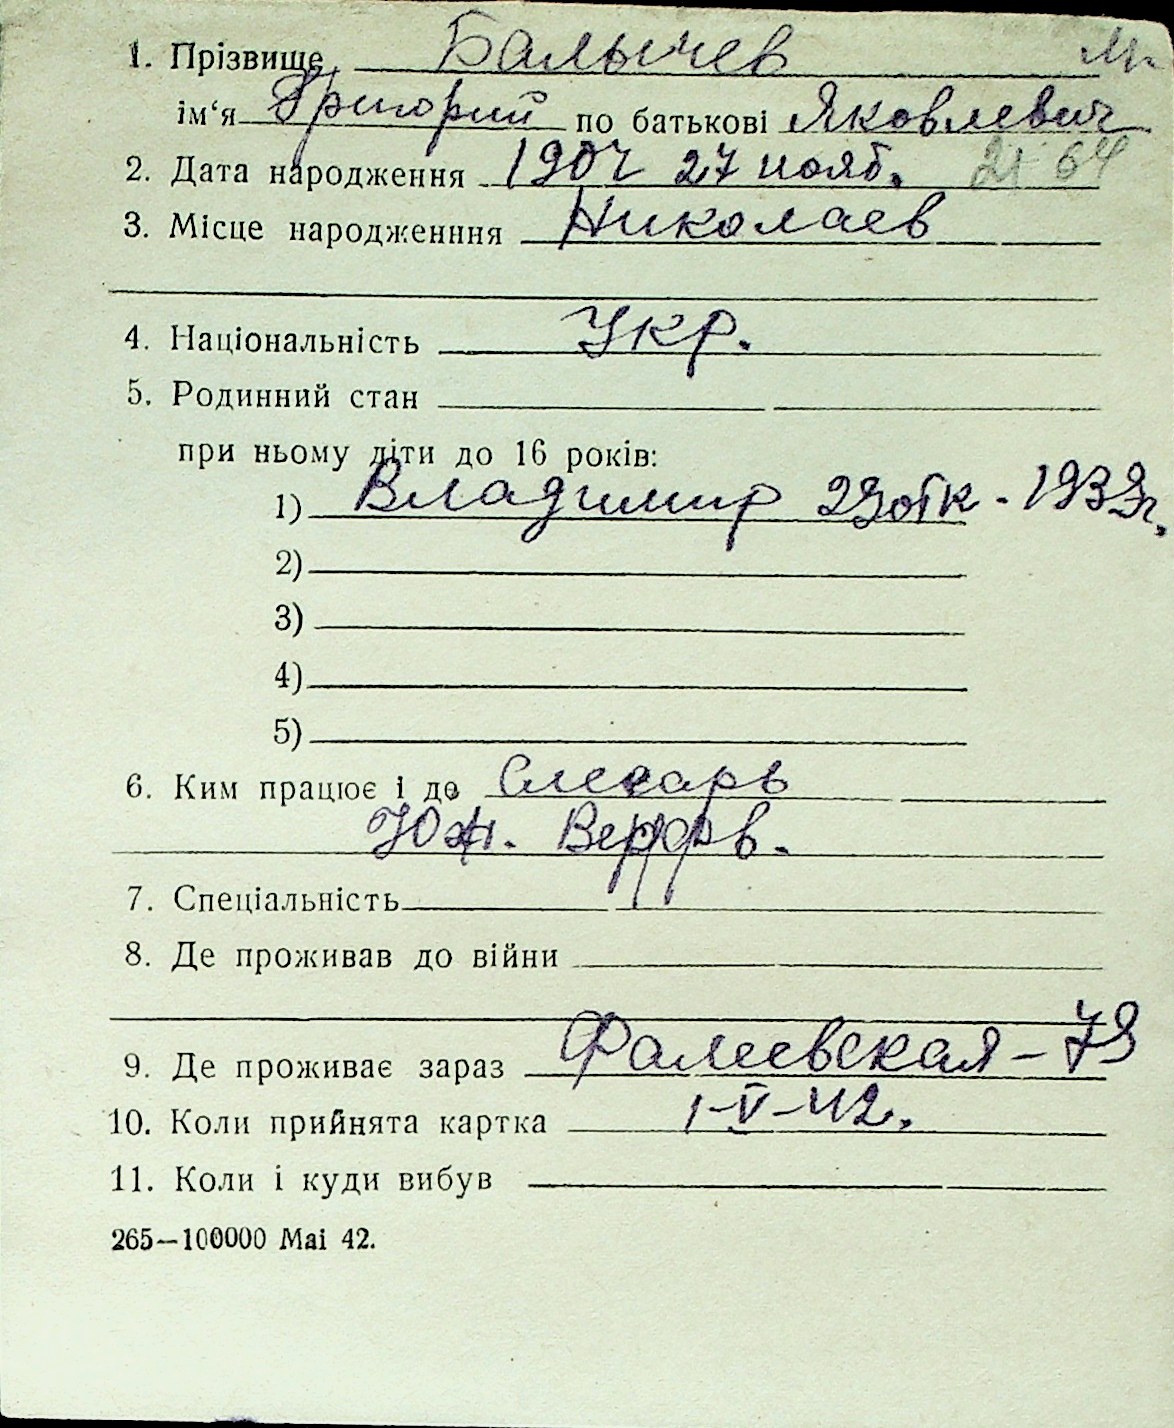 1. Прізвище Балычев
ім‘я Григорий по батькові Яковлевич
2. Дата народження 1904 27 нояб. 21 64
3. Місце народженння Николаев
4. Національність Укр.
5. Родинний стан
при ньому діти до 16 років:
1) Владимир 29 отк - 1939г.
2)
3)
4)
5)
6. Ким працює і де Слесарь
Юж. Верфь.
7. Спеціальність
8. Де проживав до війни
9. Де проживає зараз Фалеевская - 79
10. Коли прийнята картка 1-V-42.
11. Коли і куди вибув
265—100000 Mai 42.